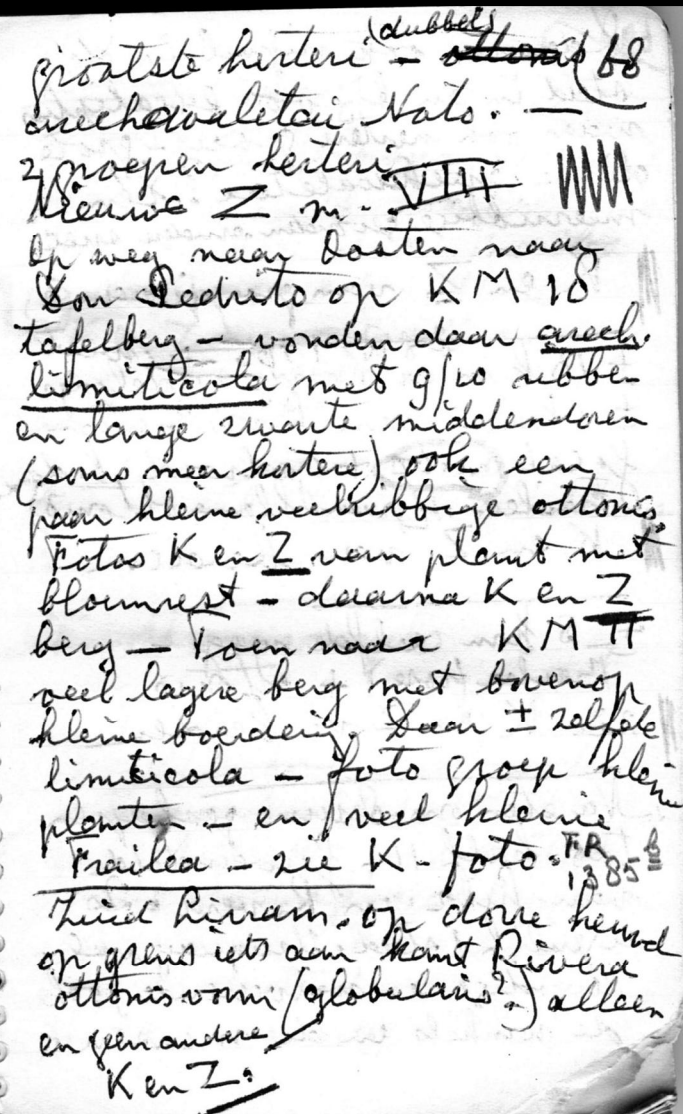 (dubbel)
grootste herteri – ottonis 68
arechavaletai Nato. —
2 groepen herteri
Nieuwe Z m. VIII
Op weg naar Oosten naar
Don Pedrito op KM 18
tafelberg – vonden daar arech.
limiticola met 9/10 ribben
en lange zwarte middendoren
(soms meer kortere) ook een
paar kleine veelribbige ottonis
Fotos K en Z van plant met
bloemrest – daarna K en Z
berg – Toen naar KM 11
veel lagere berg met bovenop
kleine boerderij. Daar ± zelfde
limiticola – foto groep kleine
planten – en veel kleine
Frailea – zie K-foto. FR
1385 b
Zuid Livram. op dorre heuvel
op grens iets aan kant Rivera
ottonis vorm (globularis?) alleen
en geen andere
K en Z.